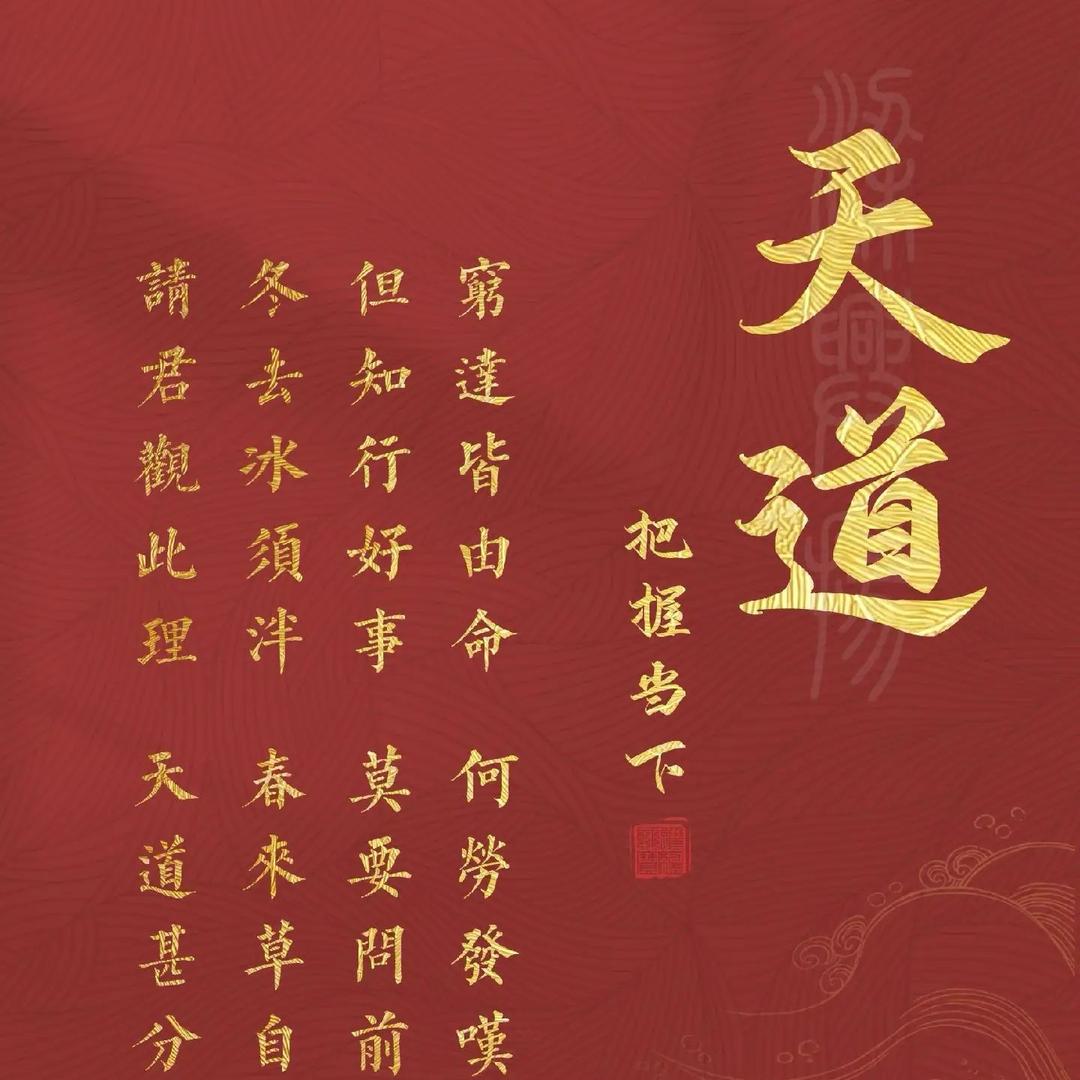 天道
把握当下
窮達皆由命
何勞發嘆
但知行好事
莫要問前
冬去冰須泮
春來草自
請君觀此理
天道甚分